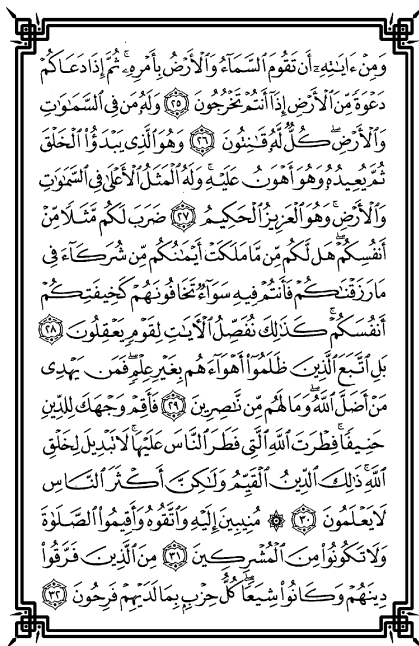 وَمِنْ ءَايَـٰتِهِۦٓ أَن تَقُومَ ٱلسَّمَآءُ وَٱلْأَرْضُ بِأَمْرِهِۦۚ ثُمَّ إِذَا دَعَاكُمْ
دَعْوَةً مِّنَ ٱلْأَرْضِ إِذَآ أَنتُمْ تَخْرُجُونَ ٢٥ وَلَهُۥ مَن فِى ٱلسَّمَـٰوَٰتِ
وَٱلْأَرْضِۖ كُلٌّ لَّهُۥ قَـٰنِتُونَ ٢٦ وَهُوَ ٱلَّذِى يَبْدَؤُا۟ ٱلْخَلْقَ
ثُمَّ يُعِيدُهُۥ وَهُوَ أَهْوَنُ عَلَيْهِۚ وَلَهُ ٱلْمَثَلُ ٱلْأَعْلَىٰ فِى ٱلسَّمَـٰوَٰتِ
وَٱلْأَرْضِۚ وَهُوَ ٱلْعَزِيزُ ٱلْحَكِيمُ ٢٧ ضَرَبَ لَكُم مَّثَلًا مِّنْ
أَنفُسِكُمْۖ هَل لَّكُم مِّن مَّا مَلَكَتْ أَيْمَـٰنُكُم مِّن شُرَكَآءَ فِى
مَا رَزَقْنَـٰكُمْ فَأَنتُمْ فِيهِ سَوَآءٌ تَخَافُونَهُمْ كَخِيفَتِكُمْ
أَنفُسَكُمْۚ كَذَٰلِكَ نُفَصِّلُ ٱلْـَٔايَـٰتِ لِقَوْمٍ يَعْقِلُونَ ٢٨
بَلِ ٱتَّبَعَ ٱلَّذِينَ ظَلَمُوٓا۟ أَهْوَآءَهُم بِغَيْرِ عِلْمٍۖ فَمَن يَهْدِى
مَنْ أَضَلَّ ٱللَّهُۖ وَمَا لَهُم مِّن نَّـٰصِرِينَ ٢٩ فَأَقِمْ وَجْهَكَ لِلدِّينِ
حَنِيفًاۚ فِطْرَتَ ٱللَّهِ ٱلَّتِى فَطَرَ ٱلنَّاسَ عَلَيْهَاۚ لَا تَبْدِيلَ لِخَلْقِ
ٱللَّهِۚ ذَٰلِكَ ٱلدِّينُ ٱلْقَيِّمُ وَلَـٰكِنَّ أَكْثَرَ ٱلنَّاسِ
لَا يَعْلَمُونَ ٣٠ ۞ مُنِيبِينَ إِلَيْهِ وَٱتَّقُوهُ وَأَقِيمُوا۟ ٱلصَّلَوٰةَ
وَلَا تَكُونُوا۟ مِنَ ٱلْمُشْرِكِينَ ٣١ مِنَ ٱلَّذِينَ فَرَّقُوا۟
دِينَهُمْ وَكَانُوا۟ شِيَعًاۖ كُلُّ حِزْبٍۭ بِمَا لَدَيْهِمْ فَرِحُونَ ٣٢